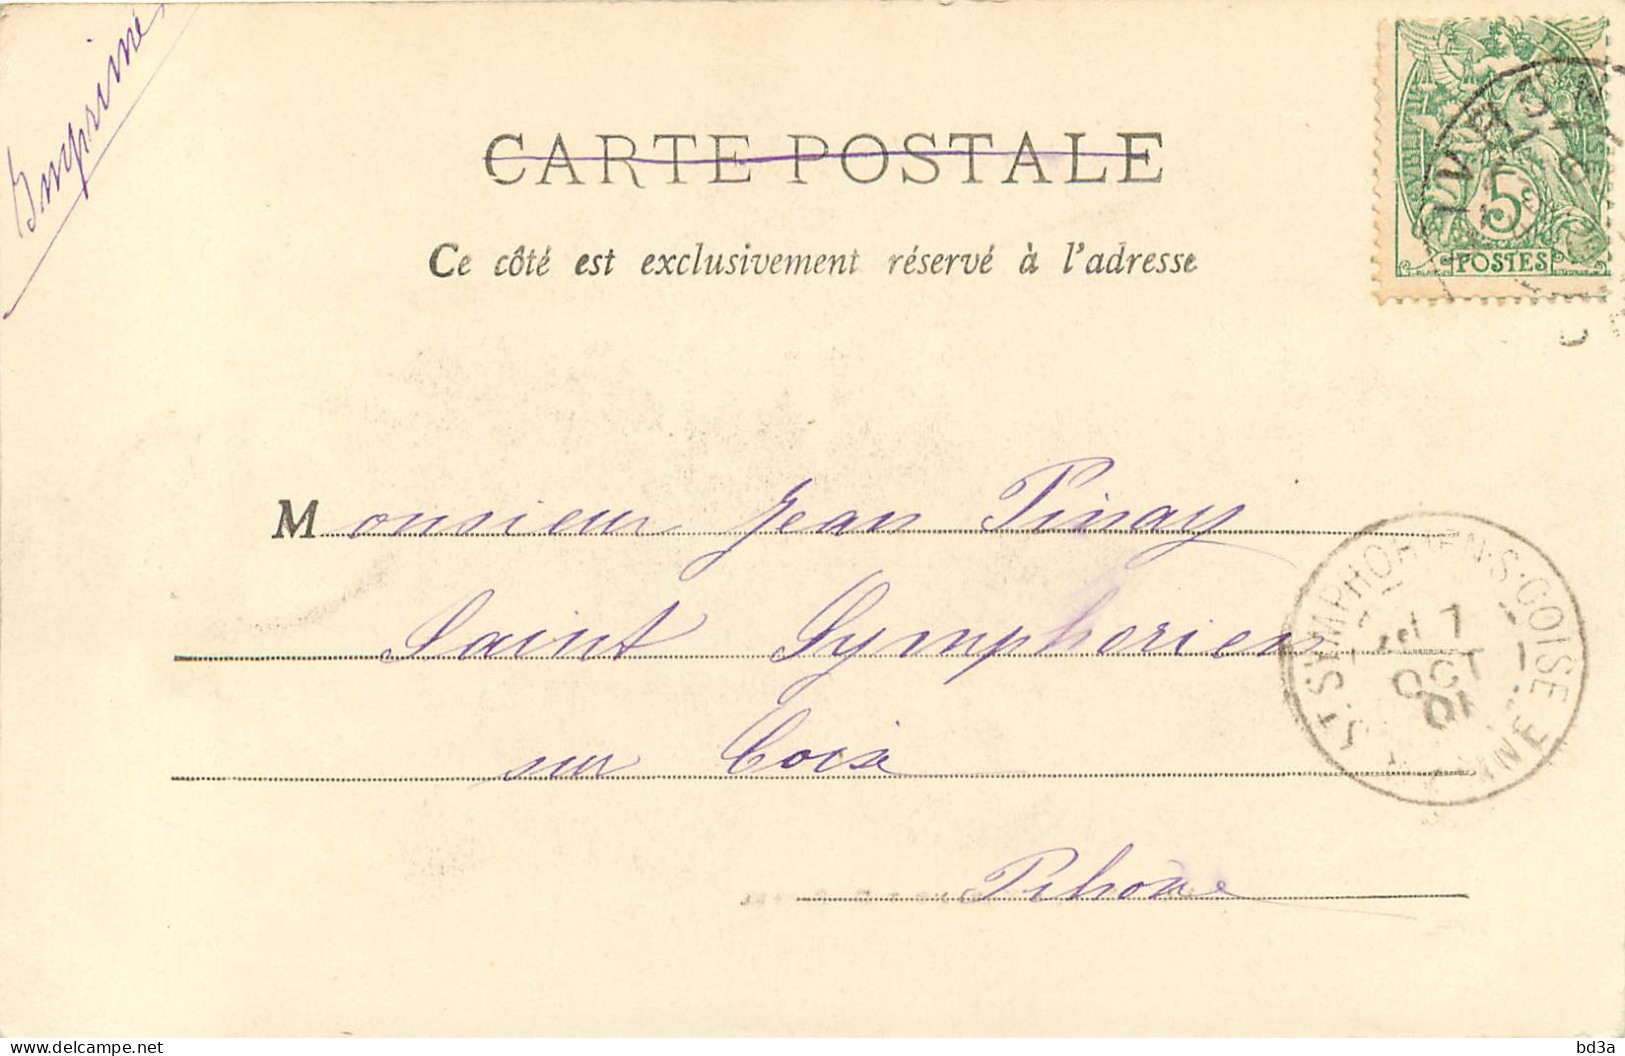 Imprimé
CARTE POSTALE
Ce côté est exclusivement réservé à l'adresse
5c
POSTES
Monsieur Jean Pinay
Saint Symphorien
sur Coise
Rhône
ST. SYMPHORIEN-S-COISE
7
OCT
01
delcampe.net
bd3a